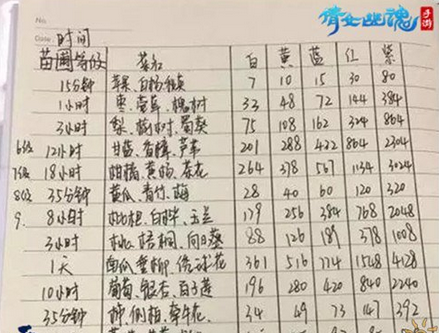 No.
倩女幽魂 手游
Date 时间
苗圃等级 茶名 白 黄 蓝 红 紫
15分钟 苹果、白杨、 7 10 15 30 80
1小时 枣、 槐树 33 48 72 144 384
3小时 梨、 树、蜀葵 75 108 162 324 864
6级 12小时 甘蓝、香樟、芦苇 201 288 432 864 2304
7级 18小时 柑橘、黄杨、茶花 264 378 567 1134 3024
8级 35分钟 黄瓜、青竹、梅 28 40 60 120 320
9. 8小时 白桦、玉兰 179 256 384 768 2048
3小时 桃、梧桐、向日葵 88 126 189 378 1008
1天 南瓜、垂柳、绣球花 361 516 774 1548 4128
10小时 葡萄、银杏、百子莲 196 280 420 840 2240
35分钟 柿、侧柏、牵牛花、 34 49 73 147 392